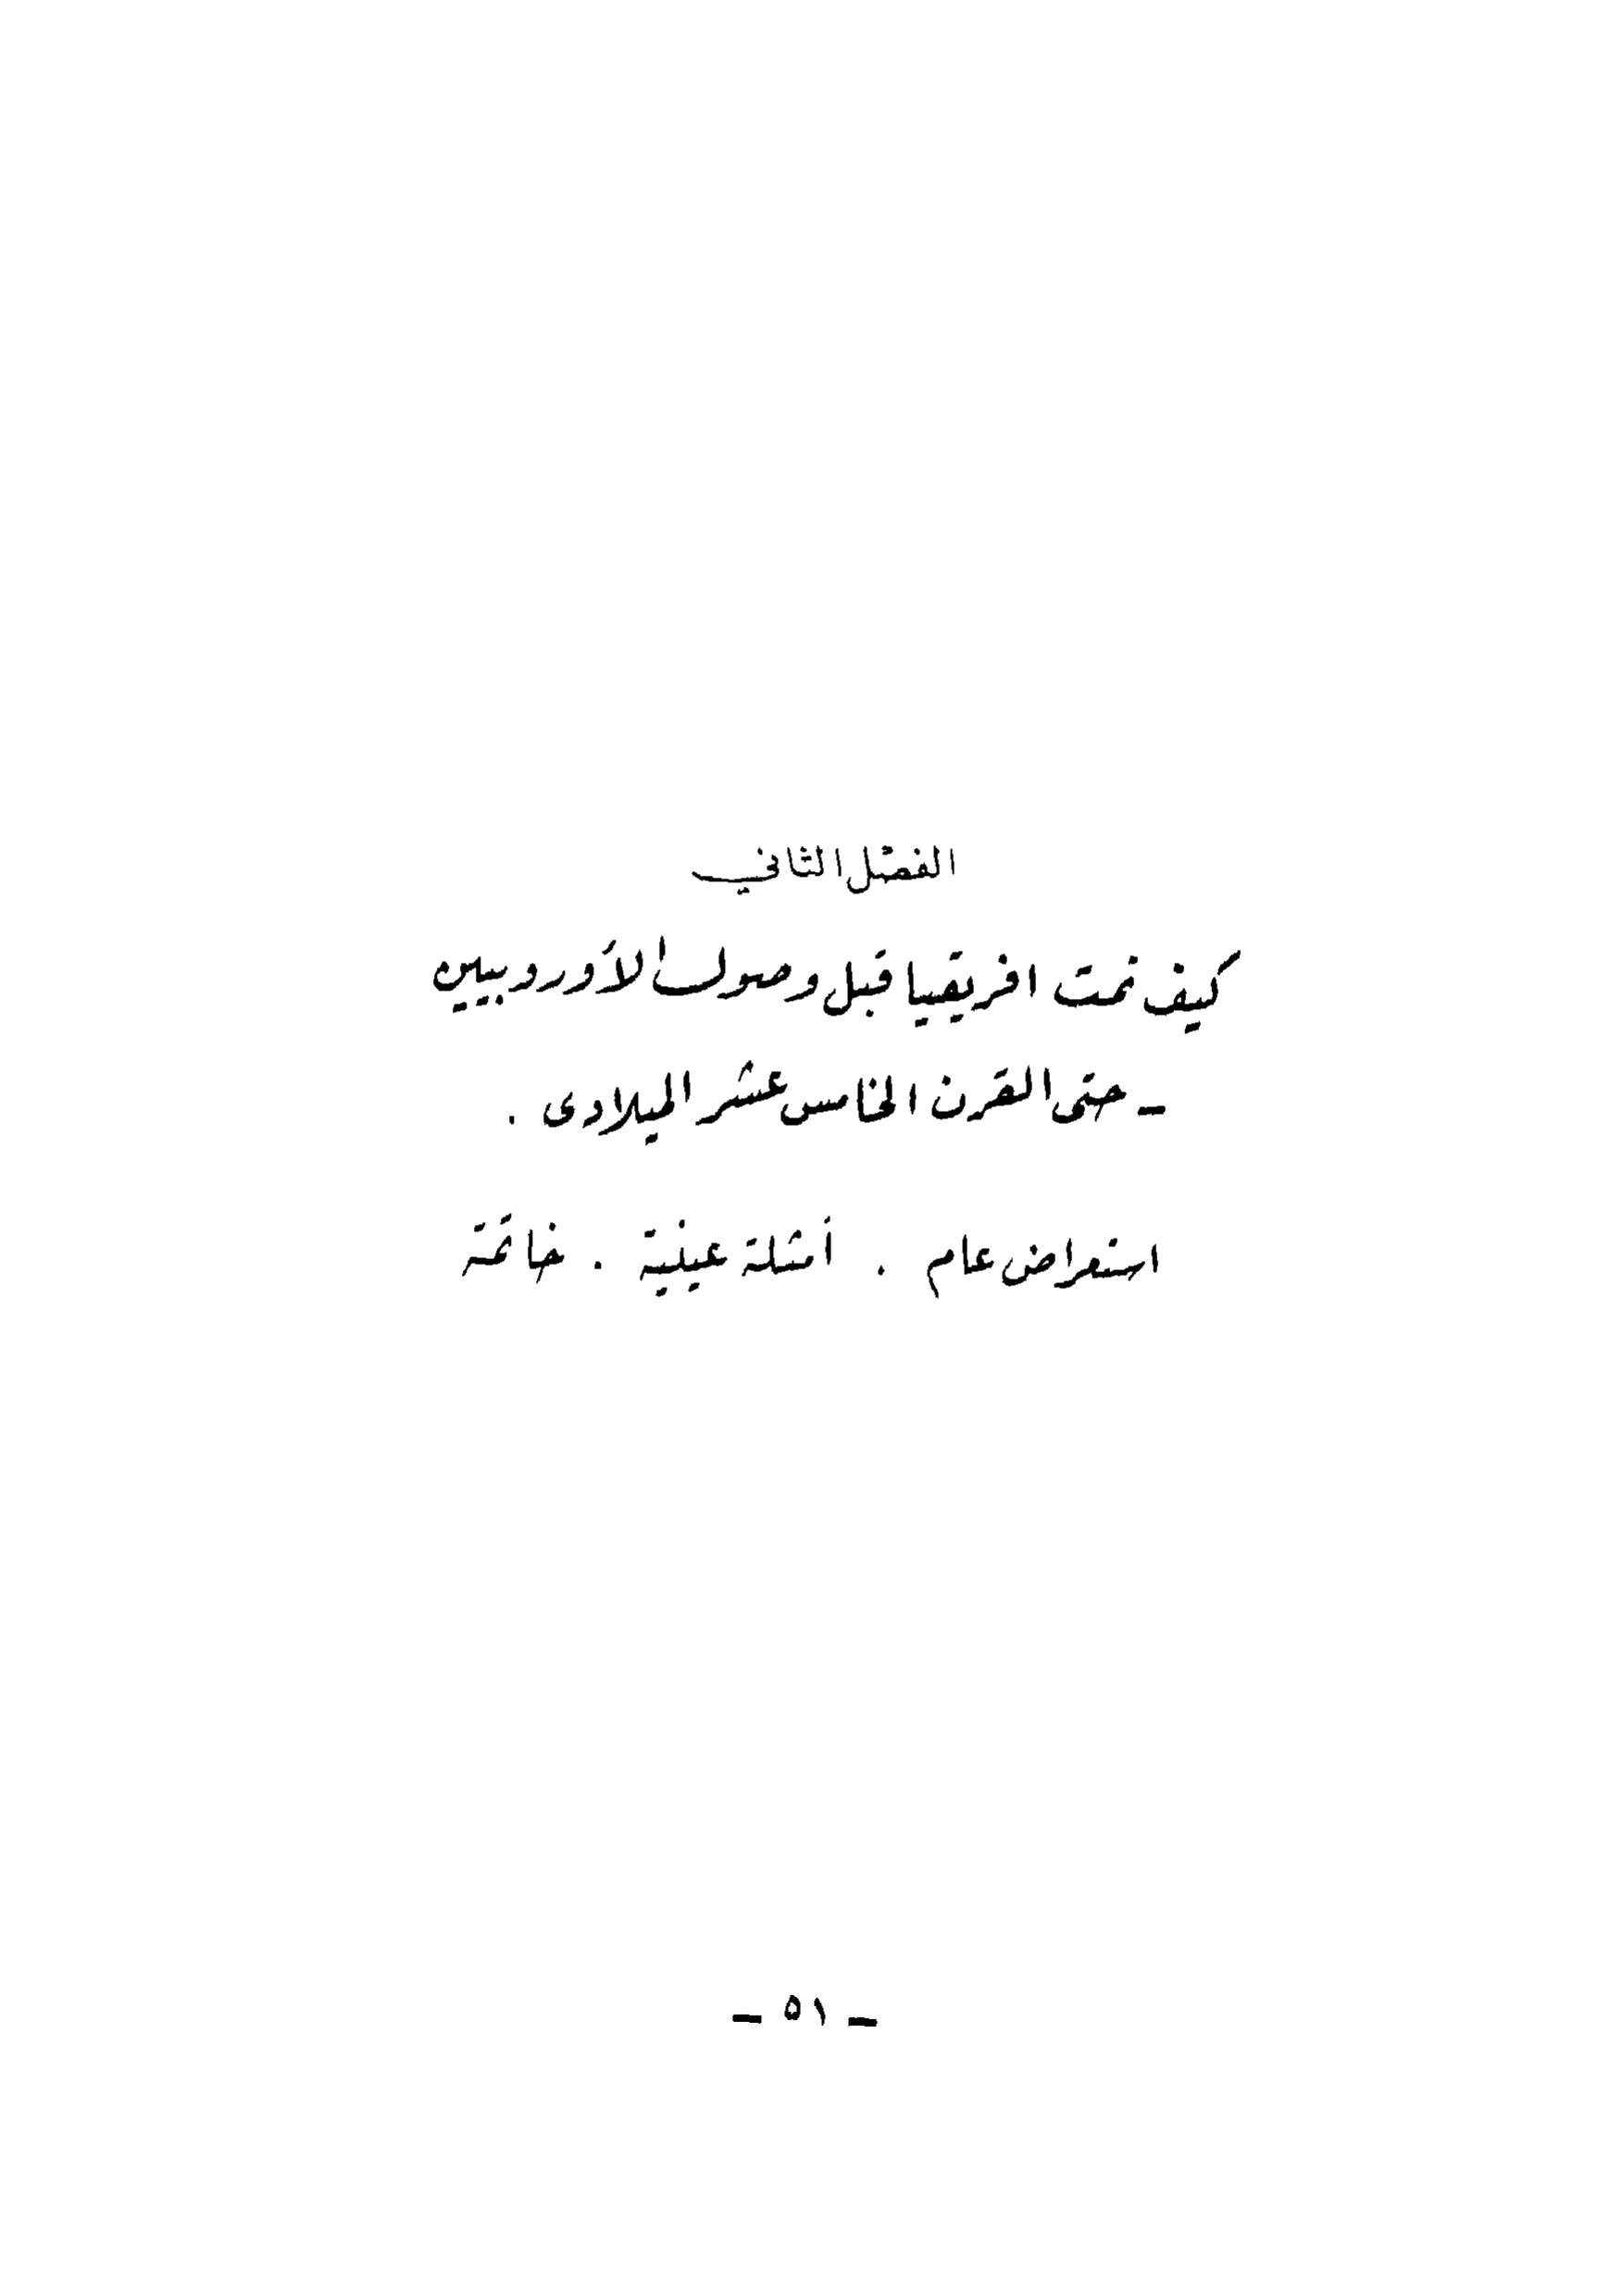 الفصل الثاني
كيف نمت افريقيا قبل وصول الأوروبيين
ـ حتى القرن الخامس عشر الميلادى .
استعراض عام . أمثلة عينية . خاتمة
ـ ٥١ ـ